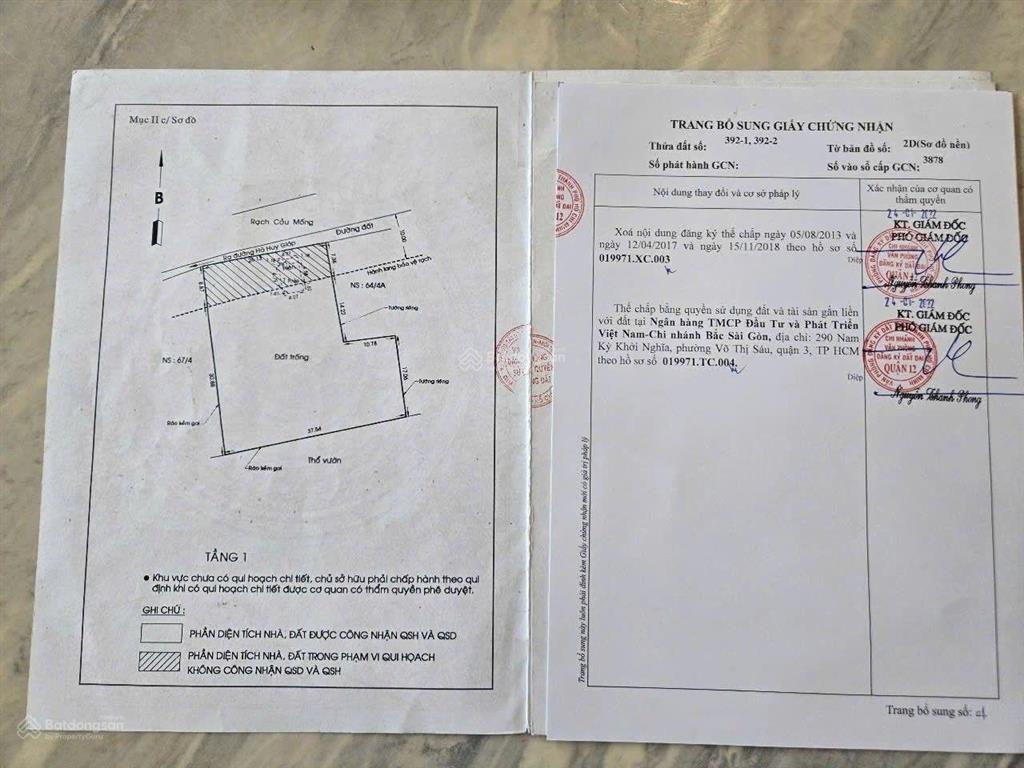 Mục II c/ Sơ đồ
B
Rạch Cầu Mống
Đường đất
10.00
Ra đường Hà Huy Giáp
Hành lang bảo vệ rạch
NS : 64/4A
8.57
7.36
14.22
Tường riêng
10.78
NS : 67/4
Đất trống
30.88
17.06
Tường riêng
Rào kẽm gai
37.54
Rào kẽm gai
Thổ vườn
TẦNG 1
● Khu vực chưa có qui hoạch chi tiết, chủ sở hữu phải chấp hành theo qui
định khi có qui hoạch chi tiết được cơ quan có thẩm quyền phê duyệt.
GHI CHÚ :
PHẦN DIỆN TÍCH NHÀ, ĐẤT ĐƯỢC CÔNG NHẬN QSH VÀ QSD
PHẦN DIỆN TÍCH NHÀ, ĐẤT TRONG PHẠM VI QUI HOẠCH
KHÔNG CÔNG NHẬN QSD VÀ QSH
Batdongsan
by PropertyGuru
TRANG BỔ SUNG GIẤY CHỨNG NHẬN
Thửa đất số: 392-1, 392-2 Tờ bản đồ số: 2D(Sơ đồ nền)
Số phát hành GCN: Số vào sổ cấp GCN: 3878
Nội dung thay đổi và cơ sở pháp lý
Xác nhận của cơ quan có
thẩm quyền
Xoá nội dung đăng ký thế chấp ngày 05/08/2013 và
ngày 12/04/2017 và ngày 15/11/2018 theo hồ sơ số
019971.XC.003
Diệp
24-01-2022
KT. GIÁM ĐỐC
PHÓ GIÁM ĐỐC
CHI NHÁNH
VĂN PHÒNG
ĐĂNG KÝ ĐẤT ĐAI
QUẬN 12
Nguyễn Thanh Phong
Thế chấp bằng quyền sử dụng đất và tài sản gắn liền
với đất tại Ngân hàng TMCP Đầu Tư và Phát Triển
Việt Nam-Chi nhánh Bắc Sài Gòn, địa chỉ: 290 Nam
Kỳ Khởi Nghĩa, phường Võ Thị Sáu, quận 3, TP HCM
theo hồ sơ số 019971.TC.004
Diệp
24-01-2022
KT. GIÁM ĐỐC
PHÓ GIÁM ĐỐC
CHI NHÁNH
VĂN PHÒNG
ĐĂNG KÝ ĐẤT ĐAI
QUẬN 12
Nguyễn Thanh Phong
Trang bổ sung này luôn phải đính kèm Giấy chứng nhận mới có giá trị pháp lý
Trang bổ sung số: